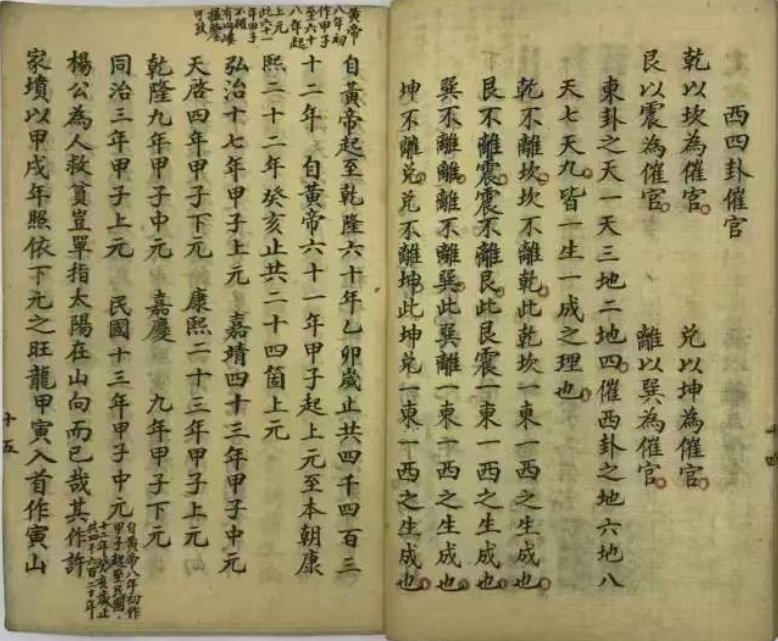 西四卦催官
乾以坎為催官　兌以坤為催官
艮以震為催官　離以巽為催官
東卦之天一天三地二地四催西卦之地六地八
天七天九皆一生一成之理也
乾不離坎坎不離乾此乾坎一東一西之生成也
艮不離震震不離艮此艮震一東一西之生成也
巽不離離離不離巽此巽離一東一西之生成也
坤不離兌兌不離坤此坤兌一東一西之生成也
十四
黃帝
八年初
作甲子
至六十
八年起
上元
此六十一
年甲子
不確
有山埁
可攷
自黃帝起至乾隆六十年乙卯歲止共四千四百三
十二年　自黃帝六十一年甲子起上元至本朝康
熙二十二年癸亥止共二十四箇上元
弘治十七年甲子上元　嘉靖四十三年甲子中元
天啓四年甲子下元　康熙二十三年甲子上元
乾隆九年甲子中元　嘉慶　九年甲子下元
同治三年甲子上元　民國十三年甲子中元
自黃帝八年初作
甲子起至民國
十二年癸亥歲止
共四千六百二十年
楊公為人救貧豈單指太陽在山向而已哉其作許
家墳以甲戌年照依下元之旺龍甲寅入首作寅山
十五